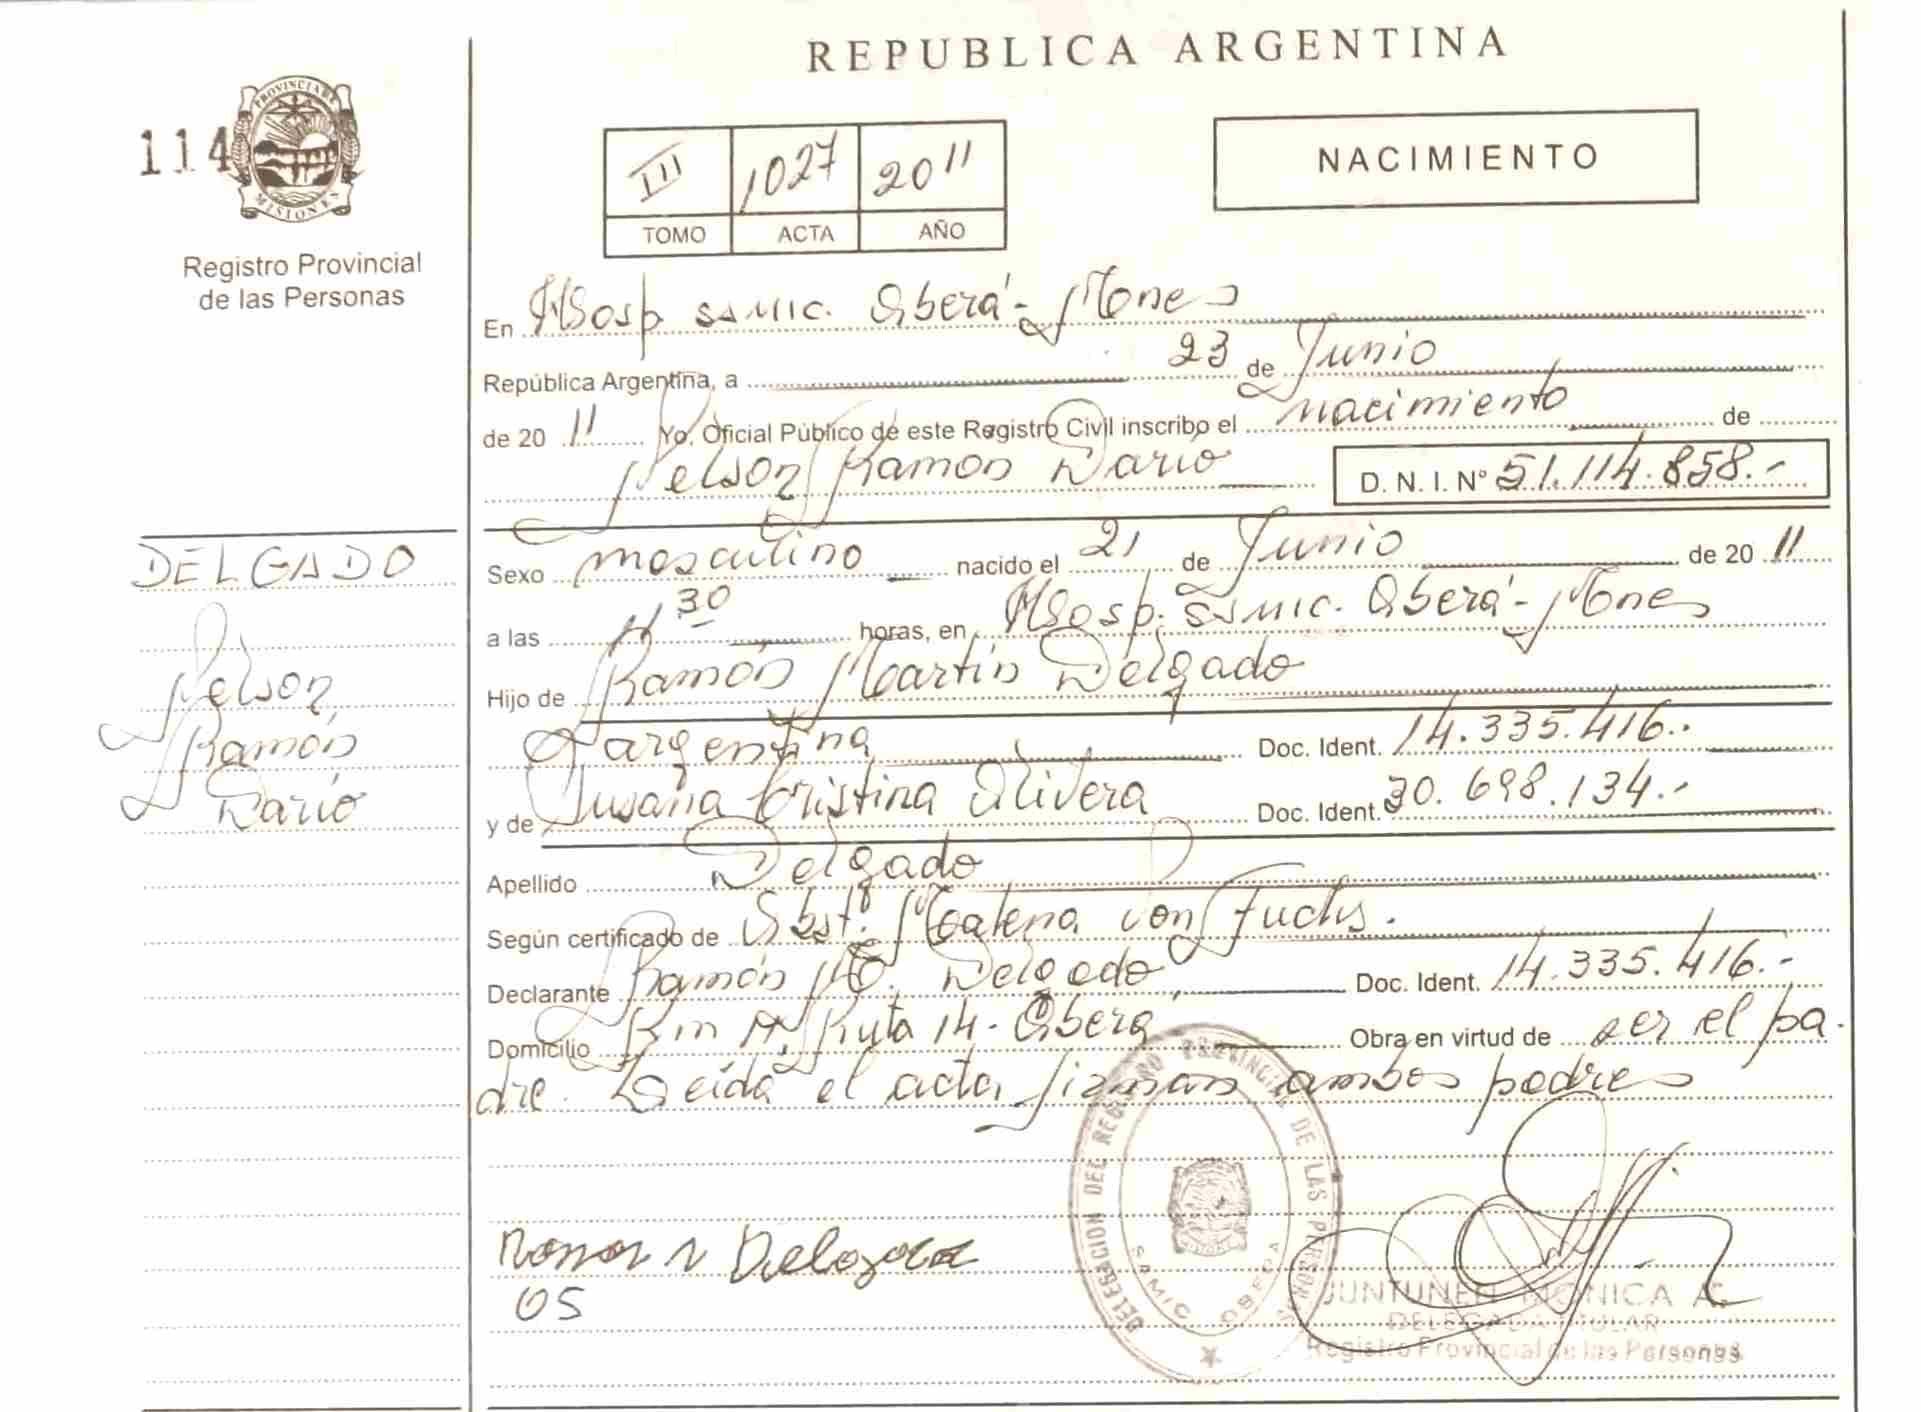 REPUBLICA ARGENTINA
114
PROVINCIA DE MISIONES
Registro Provincial
de las Personas
III 1027 2011
TOMO ACTA AÑO
NACIMIENTO
En Hosp SAMIC. Oberá - Mnes
República Argentina, a 23 de Junio
de 2011 Yo, Oficial Público de este Registro Civil inscribo el nacimiento de
Nelson Ramón Darío D. N. I. N° 51.114.858.-
DELGADO
Nelson
Ramón
Darío
Sexo masculino nacido el 21 de Junio de 2011
a las 11 30 horas, en Hosp. SAMIC. Oberá - Mnes
Hijo de Ramón Martín Delgado
Argentina Doc. Ident. 14.335.416.-
y de Susana Cristina Olivera Doc. Ident. 30.698.134.-
Apellido Delgado
Según certificado de Obst. Von Fuchs.
Declarante Ramón M. Delgado Doc. Ident. 14.335.416.-
Domicilio Ruta 14 - Oberá Obra en virtud de ser el pa-
dre. Leída el acta, firman ambos padres
DELEGACION DEL REGISTRO PROVINCIAL DE LAS PERSONAS
SAMIC OBERA
Ramon M Delgado
05
JUNTUNEN MONICA A.
DELEGADA TITULAR
Registro Provincial de las Personas